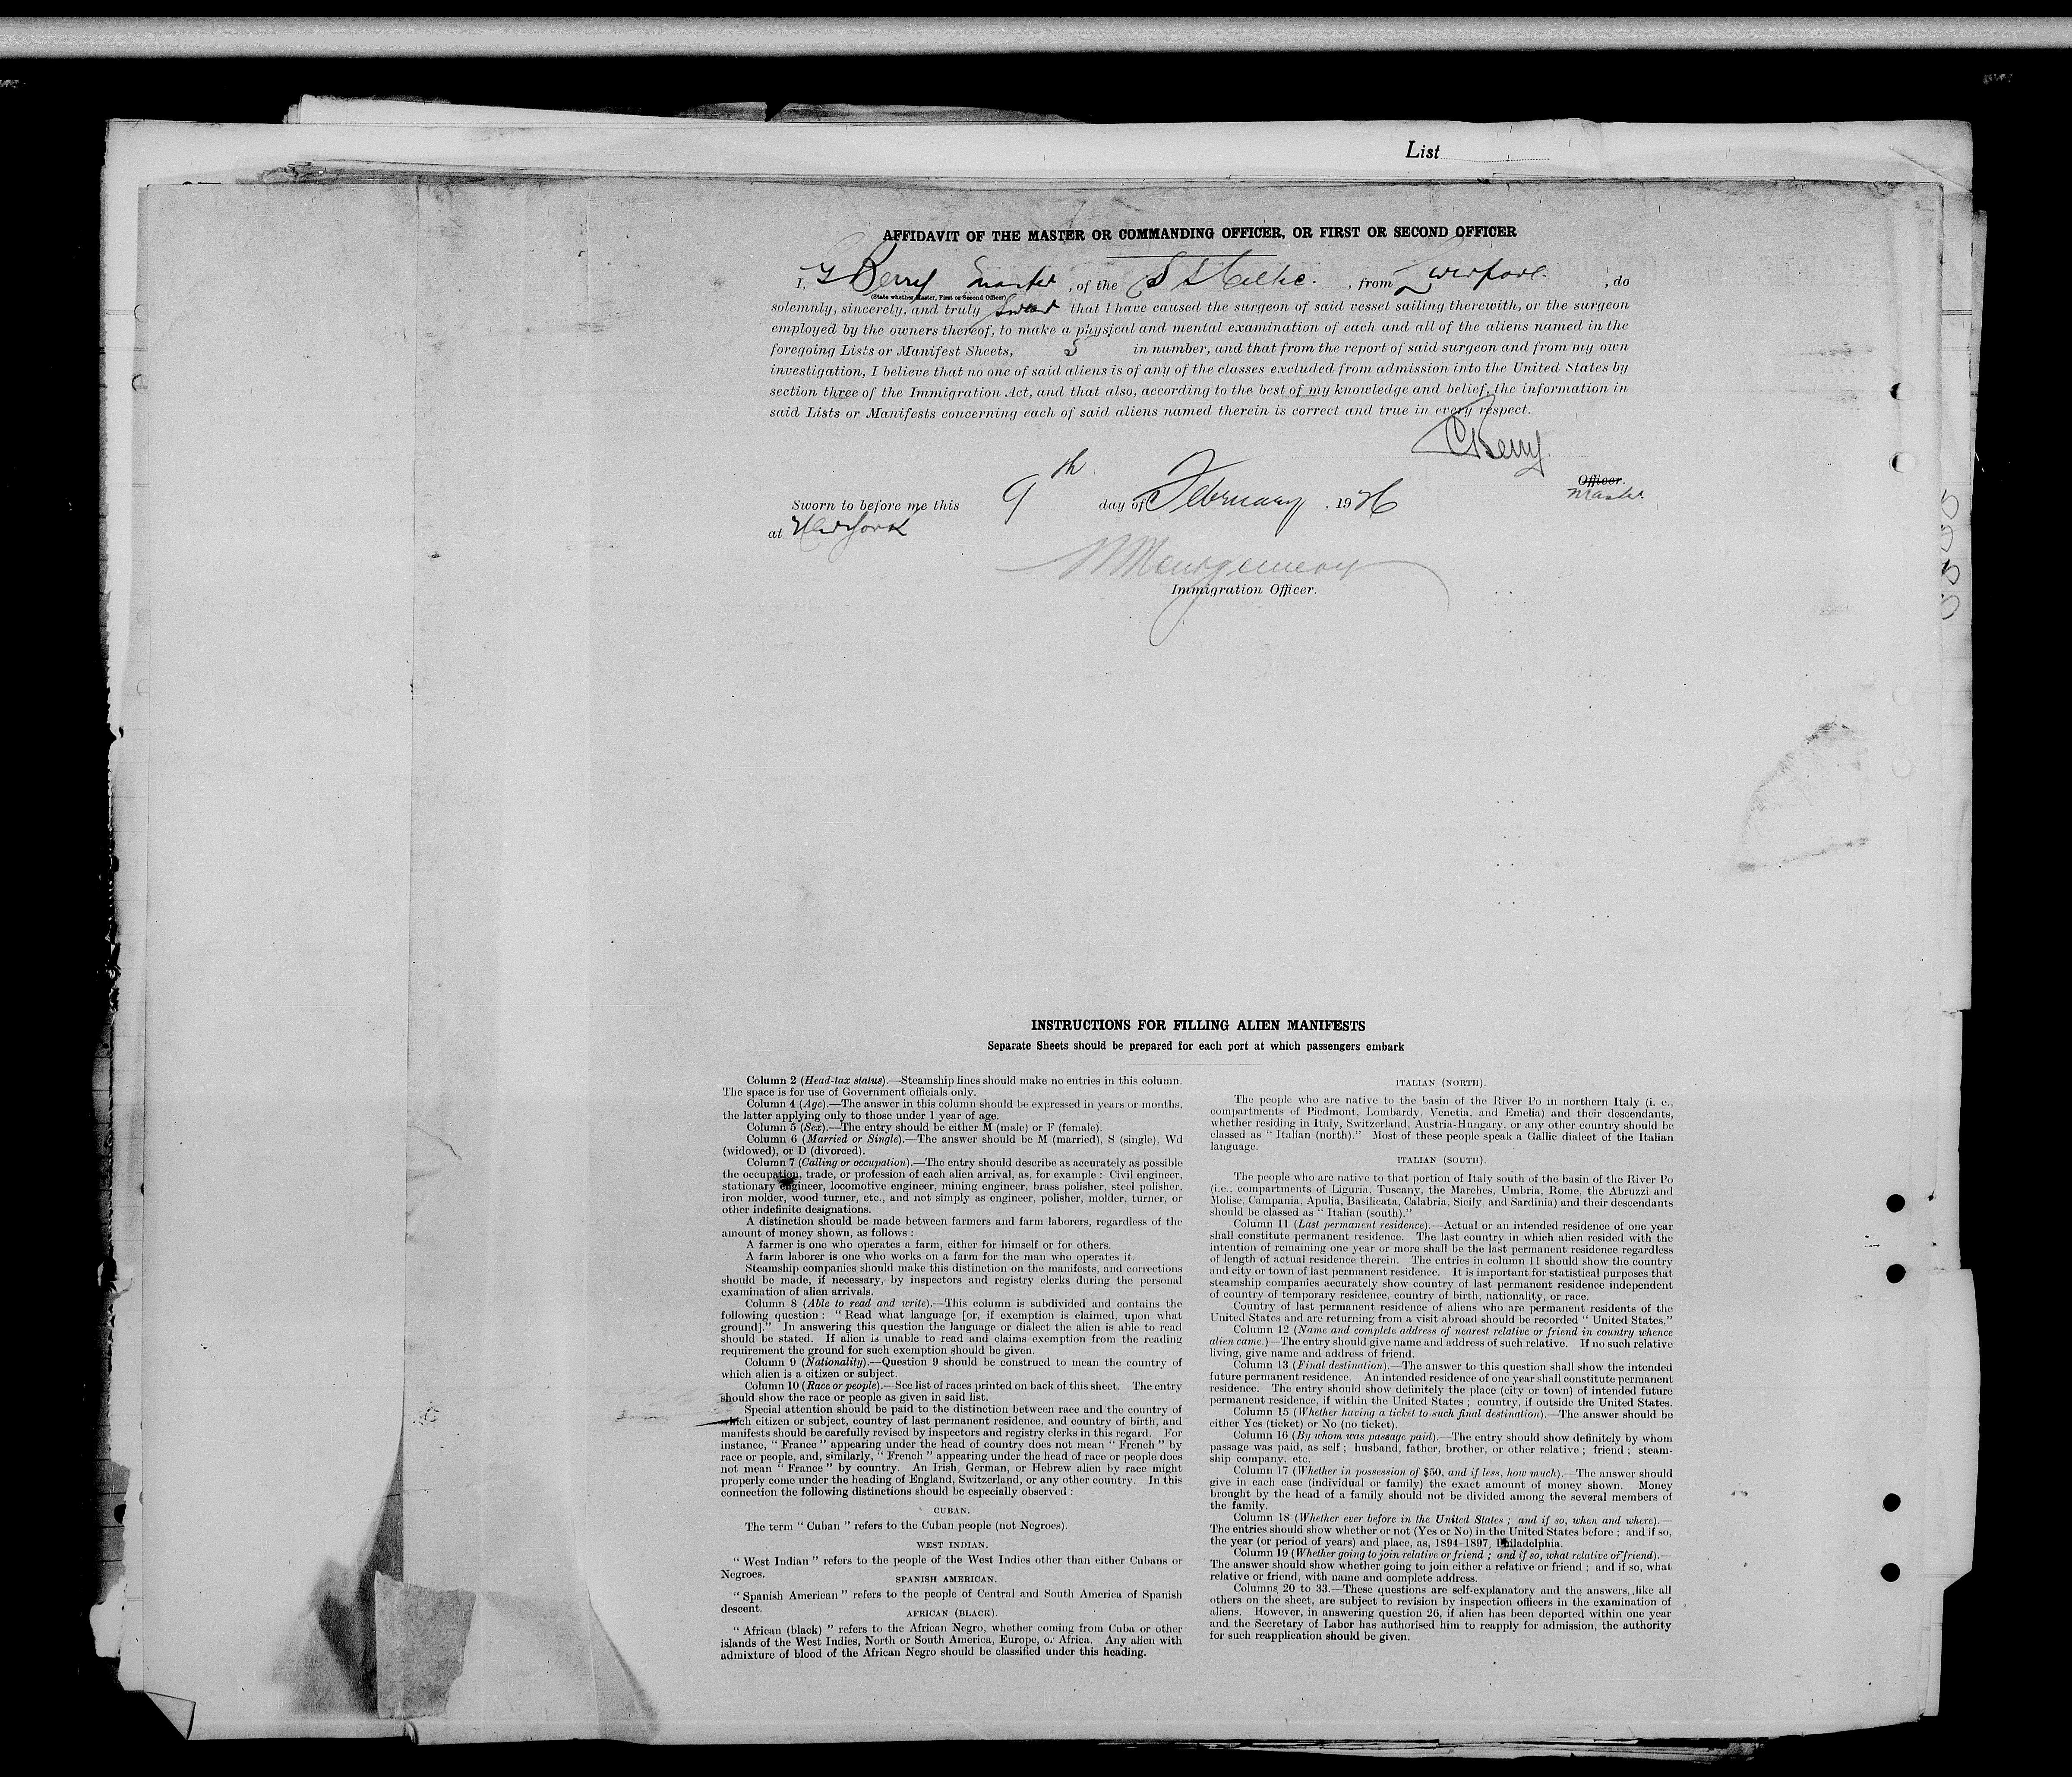 List
AFFIDAVIT OF THE MASTER OR COMMANDING OFFICER, OR FIRST OR SECOND OFFICER
I, G Berry master, of the S S Celtic. , from Liverpool. , do
(State whether Master, First or Second Officer)
solemnly, sincerely, and truly swear that I have caused the surgeon of said vessel sailing therewith, or the surgeon
employed by the owners thereof, to make a physical and mental examination of each and all of the aliens named in the
foregoing Lists or Manifest Sheets, 5 in number, and that from the report of said surgeon and from my own
investigation, I believe that no one of said aliens is of any of the classes excluded from admission into the United States by
section three of the Immigration Act, and that also, according to the best of my knowledge and belief, the information in
said Lists or Manifests concerning each of said aliens named therein is correct and true in every respect.
Berry.
Officer.
Master
Sworn to before me this 9th day of February, 1926
at New York
Montgomery
Immigration Officer.
INSTRUCTIONS FOR FILLING ALIEN MANIFESTS
Separate Sheets should be prepared for each port at which passengers embark
Column 2 (Head-tax status).—Steamship lines should make no entries in this column.
The space is for use of Government officials only.
Column 4 (Age).—The answer in this column should be expressed in years or months,
the latter applying only to those under 1 year of age.
Column 5 (Sex).—The entry should be either M (male) or F (female).
Column 6 (Married or Single).—The answer should be M (married), S (single), Wd
(widowed), or D (divorced).
Column 7 (Calling or occupation).—The entry should describe as accurately as possible
the occupation, trade, or profession of each alien arrival, as, for example : Civil engineer,
stationary engineer, locomotive engineer, mining engineer, brass polisher, steel polisher,
iron molder, wood turner, etc., and not simply as engineer, polisher, molder, turner, or
other indefinite designations.
A distinction should be made between farmers and farm laborers, regardless of the
amount of money shown, as follows :
A farmer is one who operates a farm, either for himself or for others.
A farm laborer is one who works on a farm for the man who operates it.
Steamship companies should make this distinction on the manifests, and corrections
should be made, if necessary, by inspectors and registry clerks during the personal
examination of alien arrivals.
Column 8 (Able to read and write).—This column is subdivided and contains the
following question : " Read what language [or, if exemption is claimed, upon what
ground]." In answering this question the language or dialect the alien is able to read
should be stated. If alien is unable to read and claims exemption from the reading
requirement the ground for such exemption should be given.
Column 9 (Nationality).—Question 9 should be construed to mean the country of
which alien is a citizen or subject.
Column 10 (Race or people).—See list of races printed on back of this sheet. The entry
should show the race or people as given in said list.
Special attention should be paid to the distinction between race and the country of
which citizen or subject, country of last permanent residence, and country of birth, and
manifests should be carefully revised by inspectors and registry clerks in this regard. For
instance, " France " appearing under the head of country does not mean " French " by
race or people, and, similarly, " French " appearing under the head of race or people does
not mean " France " by country. An Irish, German, or Hebrew alien by race might
properly come under the heading of England, Switzerland, or any other country. In this
connection the following distinctions should be especially observed :
CUBAN.
The term " Cuban " refers to the Cuban people (not Negroes).
WEST INDIAN.
" West Indian " refers to the people of the West Indies other than either Cubans or
Negroes.
SPANISH AMERICAN.
" Spanish American " refers to the people of Central and South America of Spanish
descent.
AFRICAN (BLACK).
" African (black) " refers to the African Negro, whether coming from Cuba or other
islands of the West Indies, North or South America, Europe, or Africa. Any alien with
admixture of blood of the African Negro should be classified under this heading.
ITALIAN (NORTH).
The people who are native to the basin of the River Po in northern Italy (i. e.,
compartments of Piedmont, Lombardy, Venetia, and Emelia) and their descendants,
whether residing in Italy, Switzerland, Austria-Hungary, or any other country should be
classed as " Italian (north)." Most of these people speak a Gallic dialect of the Italian
language.
ITALIAN (SOUTH).
The people who are native to that portion of Italy south of the basin of the River Po
(i.e., compartments of Liguria, Tuscany, the Marches, Umbria, Rome, the Abruzzi and
Molise, Campania, Apulia, Basilicata, Calabria, Sicily, and Sardinia) and their descendants
should be classed as " Italian (south)."
Column 11 (Last permanent residence).—Actual or an intended residence of one year
shall constitute permanent residence. The last country in which alien resided with the
intention of remaining one year or more shall be the last permanent residence regardless
of length of actual residence therein. The entries in column 11 should show the country
and city or town of last permanent residence. It is important for statistical purposes that
steamship companies accurately show country of last permanent residence independent
of country of temporary residence, country of birth, nationality, or race.
Country of last permanent residence of aliens who are permanent residents of the
United States and are returning from a visit abroad should be recorded " United States."
Column 12 (Name and complete address of nearest relative or friend in country whence
alien came.)—The entry should give name and address of such relative. If no such relative
living, give name and address of friend.
Column 13 (Final destination).—The answer to this question shall show the intended
future permanent residence. An intended residence of one year shall constitute permanent
residence. The entry should show definitely the place (city or town) of intended future
permanent residence, if within the United States ; country, if outside the United States.
Column 15 (Whether having a ticket to such final destination).—The answer should be
either Yes (ticket) or No (no ticket).
Column 16 (By whom was passage paid).—The entry should show definitely by whom
passage was paid, as self ; husband, father, brother, or other relative ; friend ; steam-
ship company, etc.
Column 17 (Whether in possession of $50, and if less, how much).—The answer should
give in each case (individual or family) the exact amount of money shown. Money
brought by the head of a family should not be divided among the several members of
the family.
Column 18 (Whether ever before in the United States ; and if so, when and where).—
The entries should show whether or not (Yes or No) in the United States before ; and if so,
the year (or period of years) and place, as, 1894-1897, Philadelphia.
Column 19 (Whether going to join relative or friend ; and if so, what relative or friend).—
The answer should show whether going to join either a relative or friend ; and if so, what
relative or friend, with name and complete address.
Columns 20 to 33.—These questions are self-explanatory and the answers, like all
others on the sheet, are subject to revision by inspection officers in the examination of
aliens. However, in answering question 26, if alien has been deported within one year
and the Secretary of Labor has authorised him to reapply for admission, the authority
for such reapplication should be given.